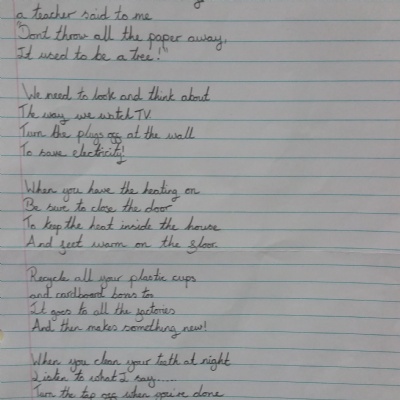 a teacher said to me
"Dont throw all the paper away,
It used to be a tree!"
We need to look and think about
The way we watch TV
Turn the plugs off at the wall
To save electricity!
When you have the heating on
Be sure to close the door
To keep the heat inside the house
And feet warm on the floor.
Recycle all your plastic cups
and cardboard boxs to
It goes to all the factories
And then makes something new!
When you clean your teeth at night
Listen to what I say.....
Turn the tap off when you're done